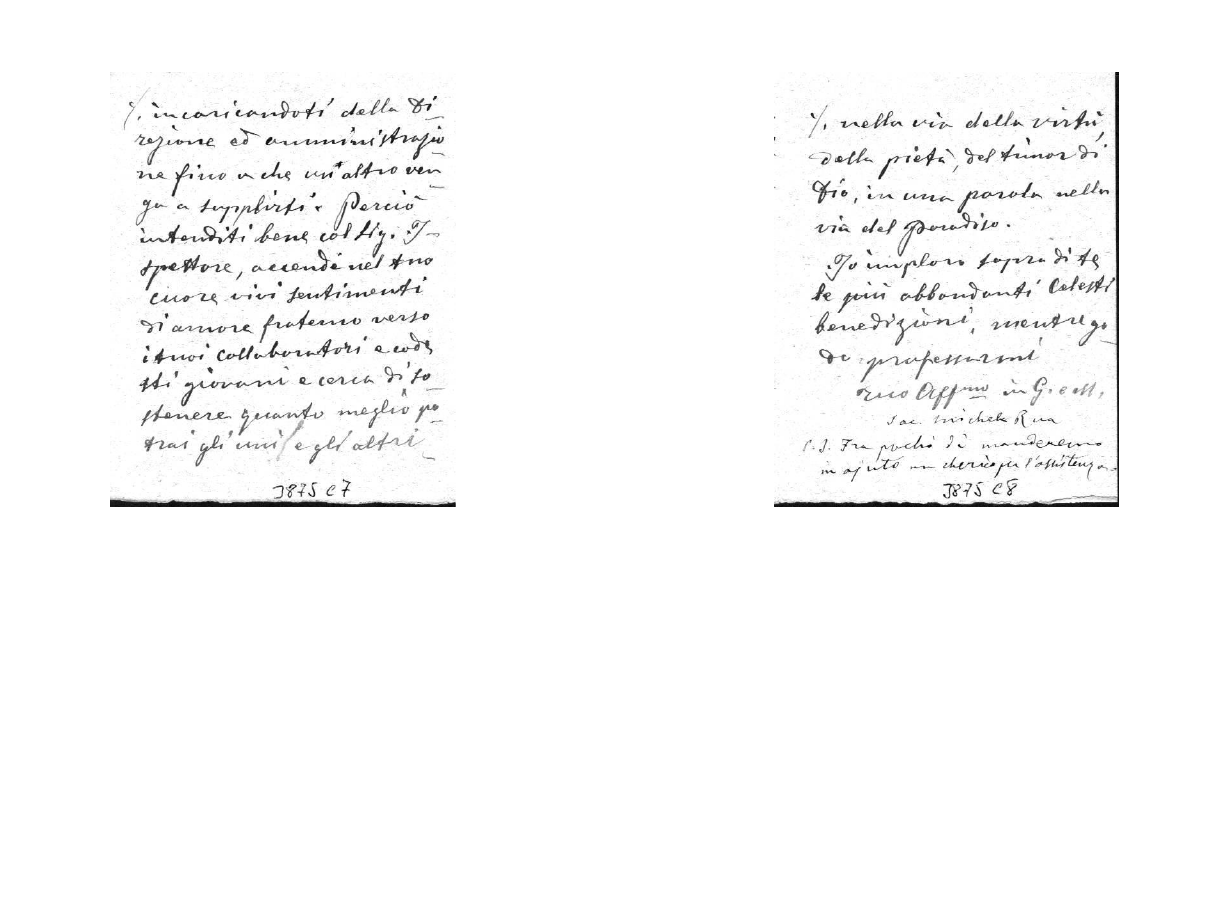 ./. incaricandoti della Di-
rezione ed amministrazio
ne fino a che un'altro ven-
ga a supplirti. Perciò
intenditi bene col Sig. I-
spettore, accendi nel tuo
cuore vivi sentimenti
di amore fraterno verso
i tuoi collaboratori e code
sti giovani e cerca di so-
stenere quanto meglio po-
trai gli uni e gli altri
3875 C7
./. nella via della virtù,
della pietà, del timor di
Dio, in una parola nella
via del Paradiso.
Io imploro sopra di te
le più abbondanti Celesti
benedizioni, mentre go-
do professarmi
Tuo Affmo in G. e M.
Sac. Michele Rua
P.S. Fra pochi dì manderemo
in ajuto un chierico per l'assistenza.
3875 C8